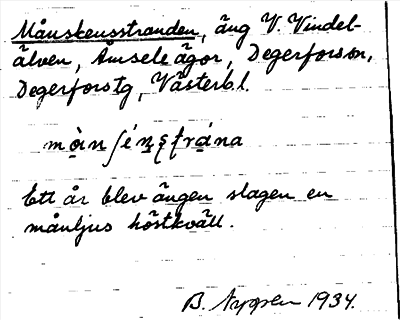 Månskensstranden, äng V. Vindel-
älven, Åmsele ägor, Degerfors sn,
Degerfors tg, Västerb. l.
Ett år blev ängen slagen en
månljus höstkväll.
B. 1934.